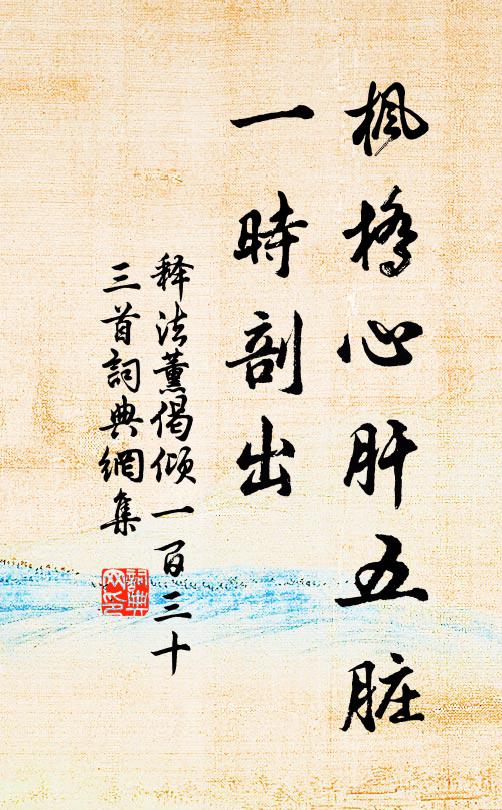 枫橋心肝五脏
一時剖出
释法薰偈倾一百三十
三首詞典網集
詞典網印